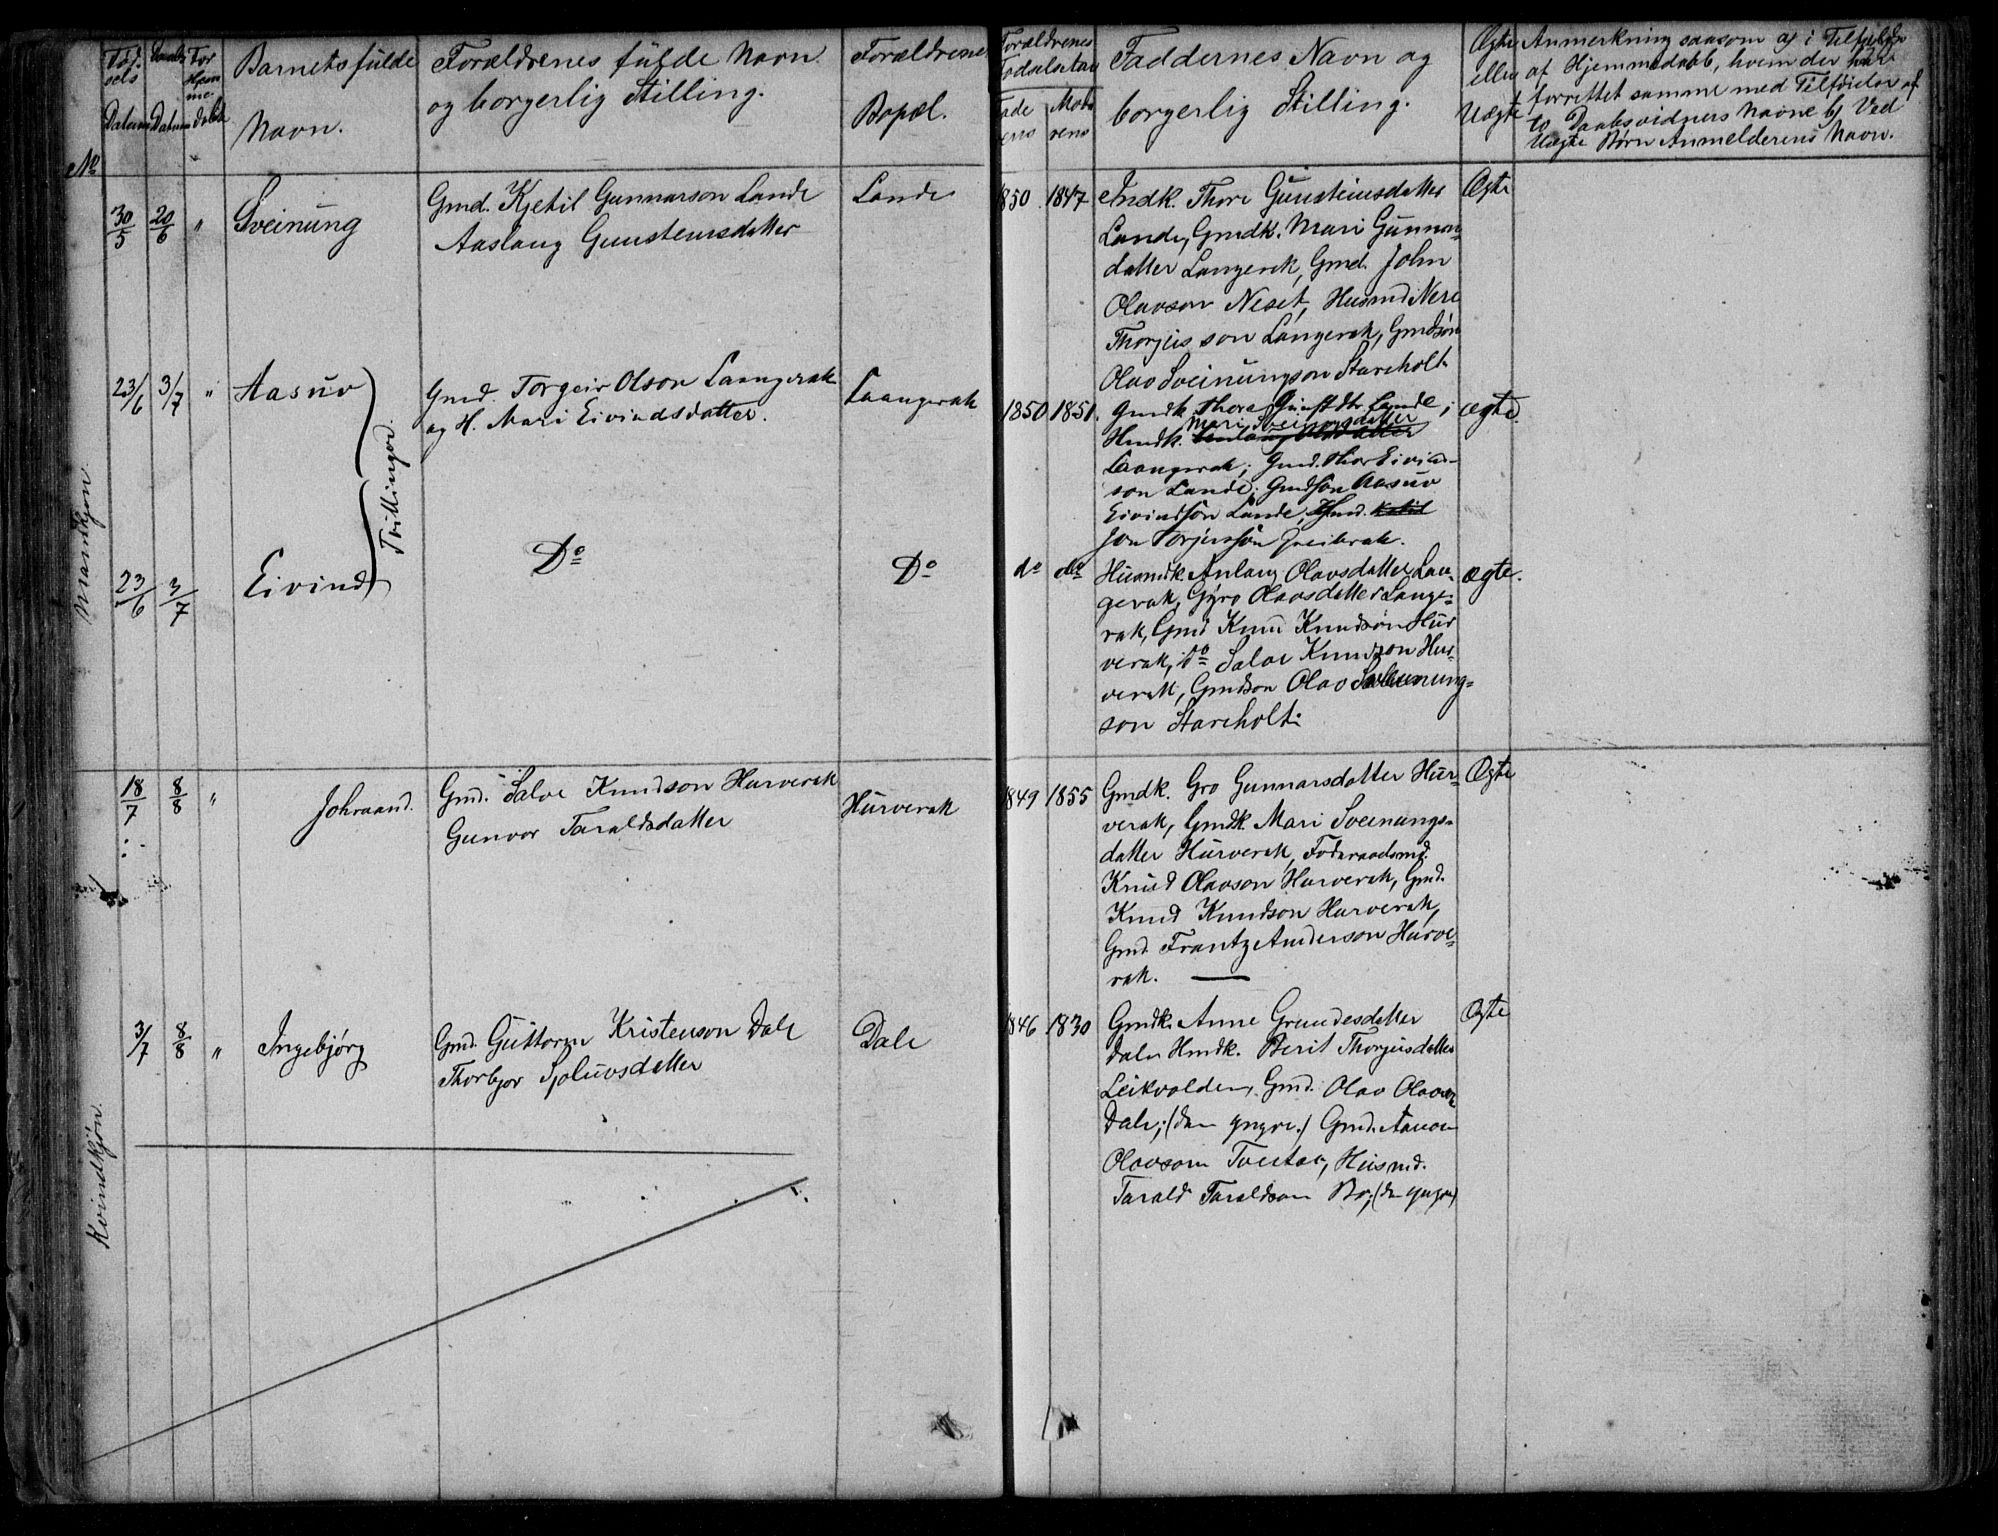 No
Fødsels Datum
Daabs Datum
For Hjemmedøbt
Barnets fulde
Navn.
Forældrenes fulde Navn
og borgerlig Stilling.
Forældrenes
Bopæl.
Forældrenes
Fødselsaar
Faderens
Moderens
Faddernes Navn og
borgerlig Stilling.
Ægte
eller
Uægte
Anmerkning saasom a) i Tilfælde
af Hjemmedaab, hvem der har
forrettet samme med Tilføielse af
to Daabsvidners Navne b) Ved
Uægte Børn Anmelderens Navn.
Mandkjøn.
30/5 20/6 " Sveinung
Gmd. Kjetil Gunnarson Lande
Aaslaug Gunsteinsdatter
Lande
1850 1847
Indk. Thore Gunsteinsdatter
Lande, Gmdk. Mari Gunnars-
datter Langerak, Gmd. John
Olavson Neset, Husmd Nere
Thorjus son Langerak, Gmdsøn
Olav Sveinungson Stareholt
Ægte
23/6 3/7 " Aasuv
Tvillinger.
Gmd. Torgeir Olson Laangerak
og H. Mari Eivindsdatter.
Laangerak
1850 1851.
Gmdk. Thore Gunstdtr Lande;
Mari Sveinungsdatter
Hmdk.
Laangerak; Gmd. Thor Eivind-
son Lande; Gmdsøn Aasuv
Eivindsøn Lande, Gmd. Ketil
Jon Torjussøn
ægte.
23/6 3/7 Eivind
Do
Do
do do
Husmdk Anlaug Olavsdatter Lan-
gerak, Gyro Olavsdatter Lange-
rak, Gmd Knud Knudson Hur
verak, do Salve Knudson Hur-
verak, Gmdson Olav Sveinung-
son Stareholt.
ægte.
Kvindkjøn.
18/7 8/8 " Johraand.
Gmd. Salve Knudson Hurverak
Gunvor Taraldsdatter
Hurverak
1849 1855
Gmdk. Gro Gunnarsdatter Hur-
verak, Gmdk. Mari Sveinungs-
datter Hurverak, Føderaadsmd.
Knud Olavson Hurverak, Gmd.
Knud Knudson Hurverak,
Gmd. Frantz Anderson Hurve-
rak.
Ægte
3/7 8/8 " Ingebjørg
Gmd. Guttorm Kristenson Dale
Thorbjor Sjoluvsdatter
Dale
1846 1830
Gmdk. Anne Grundesdatter
Dale Hmdk. Berit Thorjusdatter
Leikvolden, Gmd. Olav Olavson
Dale; (den yngre.) Gmd. Aanon
Olavson Tveitaa, Husmd.
Tarald Taraldson Bø; (den yngre)
Ægte